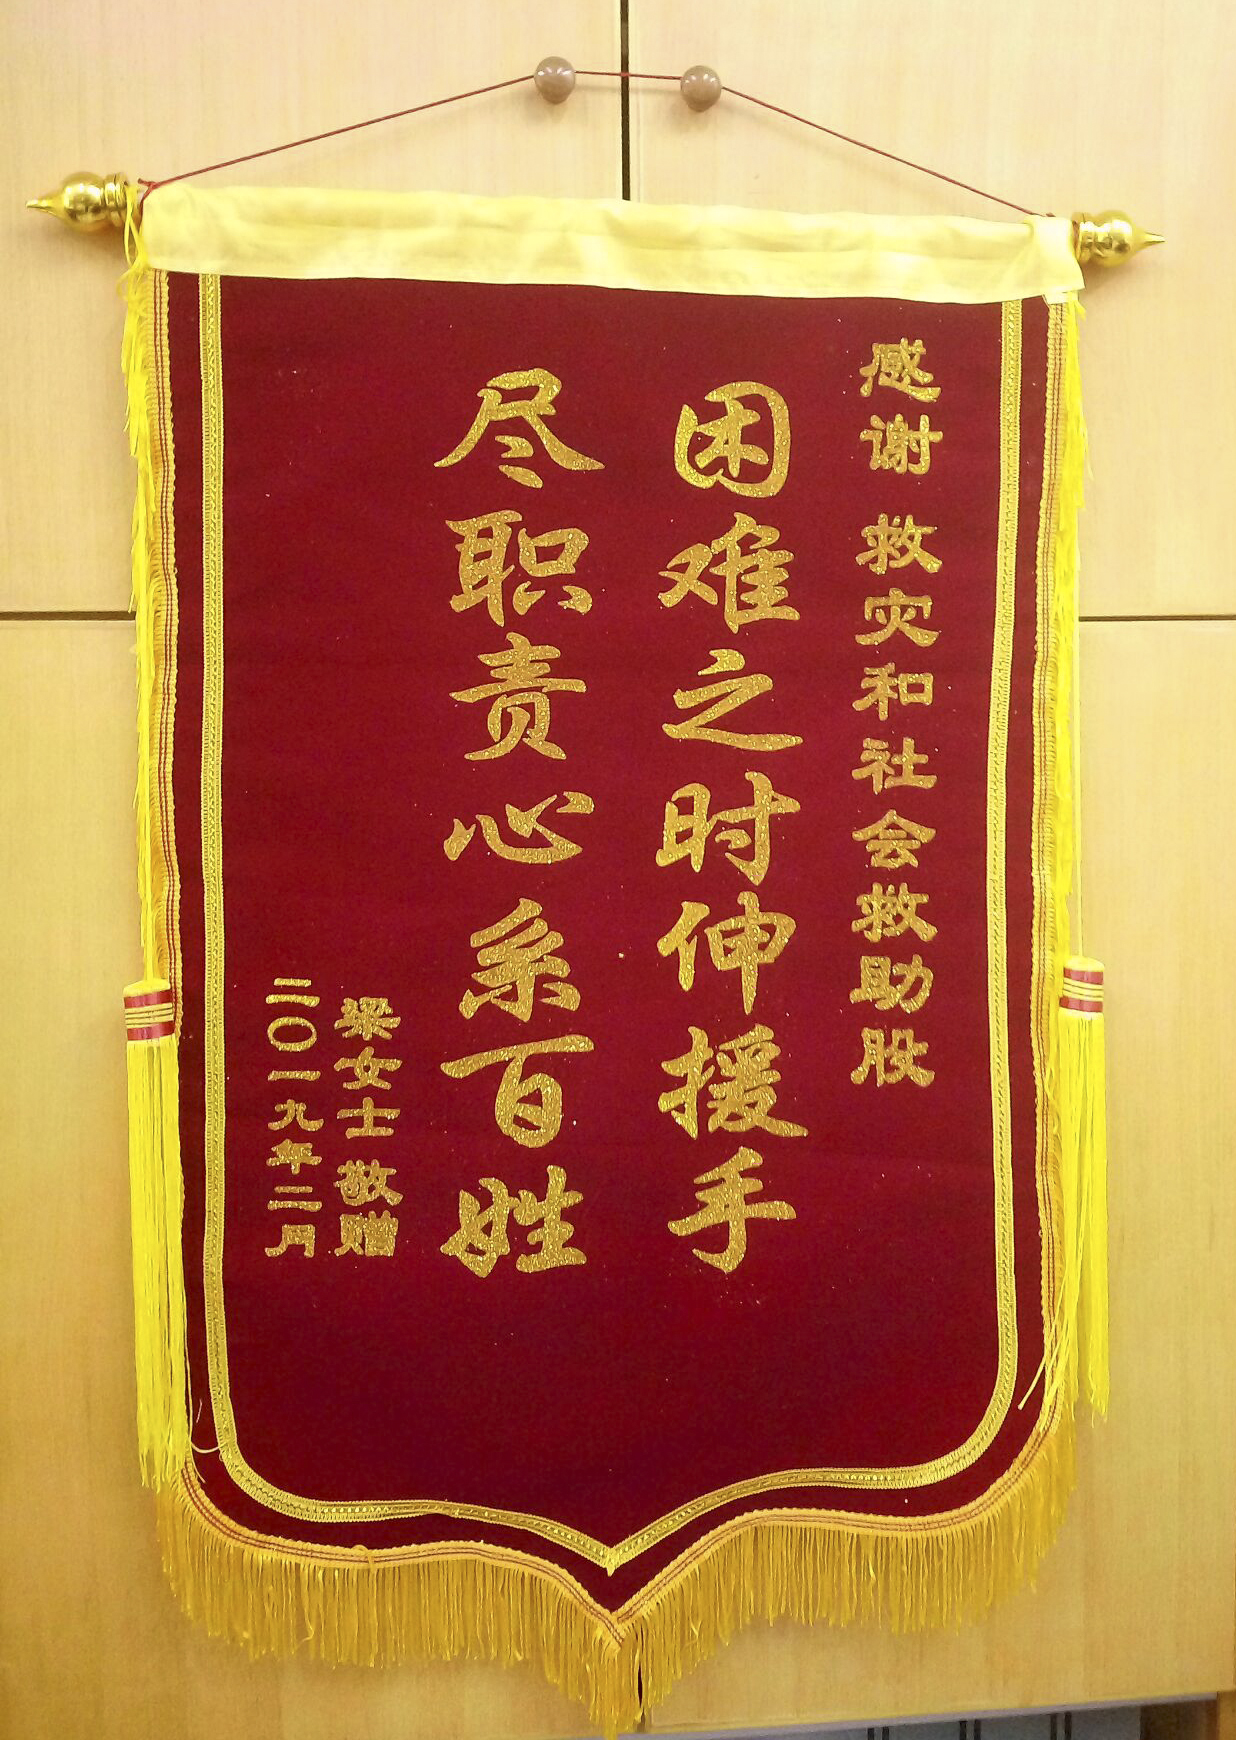 感谢 救灾和社会救助股
困难之时伸援手
尽职责心系百姓
梁女士 敬赠
二〇一九年二月